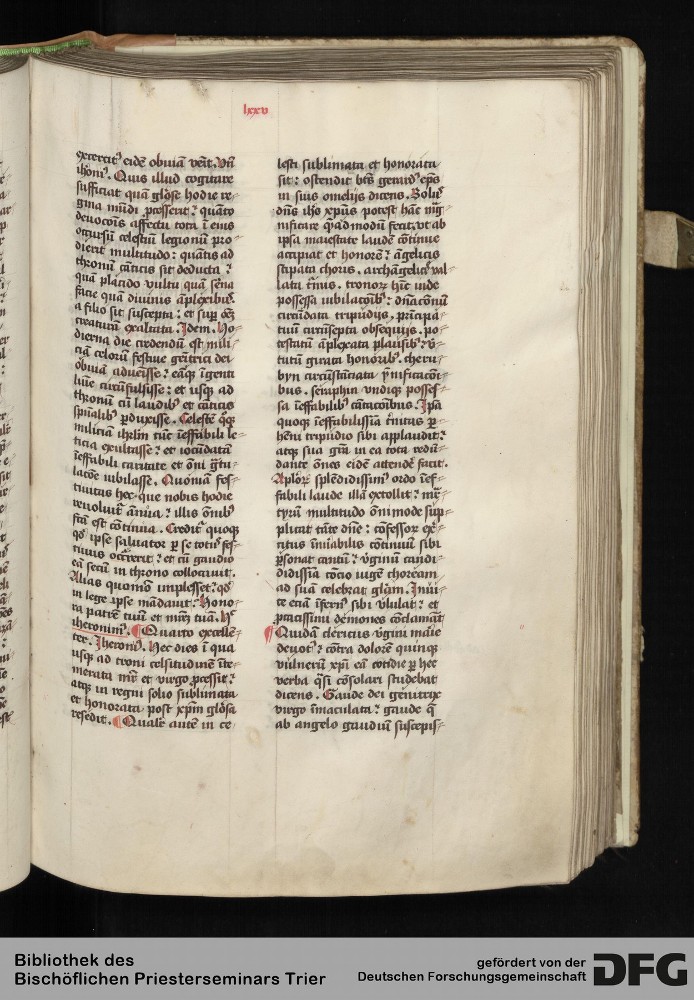 lxxv
exercitꝰ eidē obuiā venit. Vn̄
ihōnıꝰ. Quis illud cogitare
sufficiat quā gl̓ose hodie re⸗
gina mūdi ꝓcesserit : quāto
deuocōıs affectu tota ī eius
occursū celestiū legionū pro⸗
dierit multitudo : quātis ad
thronū cāticis sit deducta :
quā placido vultu quā sēna
facie quā diuinis āplexibꝰ.
a filio sit suscepta : et suꝑ oēꝫ
creaturā exaltata. Idem. Ho⸗
dierna die credendū est mili⸗
ciā celorū festiue
obuiā aduēisse : eāqꝫ īgenti
circūfulsisse : et usqꝫ ad
thronū cū laudibꝰ et cāticis
sp̄ualibꝰ ꝑduxisse. Celestē qꝫ
miliciā ihrl̓m tūc īeffabili le⸗
ticia exultasse : et iocūdatā
īeffabili caritate et om̄i
iubilasse. Quoniā fes⸗
tiuitas hec que nobis hodie
reuoluit̄ ānua : illis om̄ibꝰ
fcā est cōtinua. Credit̄ quoqꝫ
qđ ipse saluator ꝑ se totꝰ fes⸗
tiuus occrrerit : et cū gaudio
eā secū in throno collocauit.
Alias quomō implesset : qđ
in lege ipse mādauit : Hono⸗
ra patrē tuū et mr̄ꝫ tuā. Hͨ
iheronimꝰ. Quarto excellē⸗
ter. Iheronıꝰ. Hec dies ī qua
usqꝫ ad troni celsitudinē īte⸗
merata mr̄ et virgo ꝓcessit :
atqꝫ in regni solio sublimata
et honorata post xp̄m gl̓osa
resedit. Qualr̄ autē in ce⸗
lesti sublimata et honorata
sit : ostendit bt̄s gerardꝰ ep̄s
in suis omelijs dicens. Solꝰ
dn̄s ih̄s xp̄us potest hāc mag̅⸗
nificare qͣadmodū fecit, vt ab
ipsa maiestate laudē cōtinue
accipiat et honorē : āgelicis
stipata choris. archāgelicꝭ val⸗
lata t̄mis. tronorꝫ hīc inde
possessa iubilacōıbꝰ : dn̄acōnū
circūdata tripudijs. prīcipa⸗
tuū circūsepta obsequijs. po⸗
testatū āplexata plausibꝰ : v̄⸗
tutū girata honoribꝰ. cheru⸗
byn circūstāciata
bus. seraphin vndiqꝫ posses⸗
sa īeffabilibꝰ cātacōıbus. Ip̄a
quoqꝫ īeffabilissīa t̄nitas ꝑ⸗
henī tripudio sibi applaudit :
atqꝫ sua gr̄a in ea tota redū⸗
dante ōnes eidē attendē facit.
Ap̄lorꝫ splēdidissimꝰ ordo īef⸗
fabili laude illā extollit : mr̄⸗
tyrū multitudo ōnimode sup⸗
plicat tāte dn̄e : cōfessorꝫ exer̄⸗
citus īnūabilis cōtinuū sibi
ꝑsonat cantū : v̄ginū candi⸗
didissīa cōcio iugē choream
ad suā celebrat gl̓am. Inui⸗
te eciā īfernꝰ sibi vlulat : et
ꝓtacissimi demones cōclamāt̄
Quidā clericus v̄gini marie
deuotꝰ : cōtra dolorē quinqꝫ
vulnerū xp̄i eā cotidie ꝑ hec
verba qͣsi cōsolari studebat
dicens. Gaude dei genitrix
virgo īmaculata : gaude q̄
ab angelo gaudiū suscepis⸗
Bibliothek des
Bischöflichen Priesterseminars Trier
gefördert von der
Deutschen Forschungsgemeinschaft
DFG